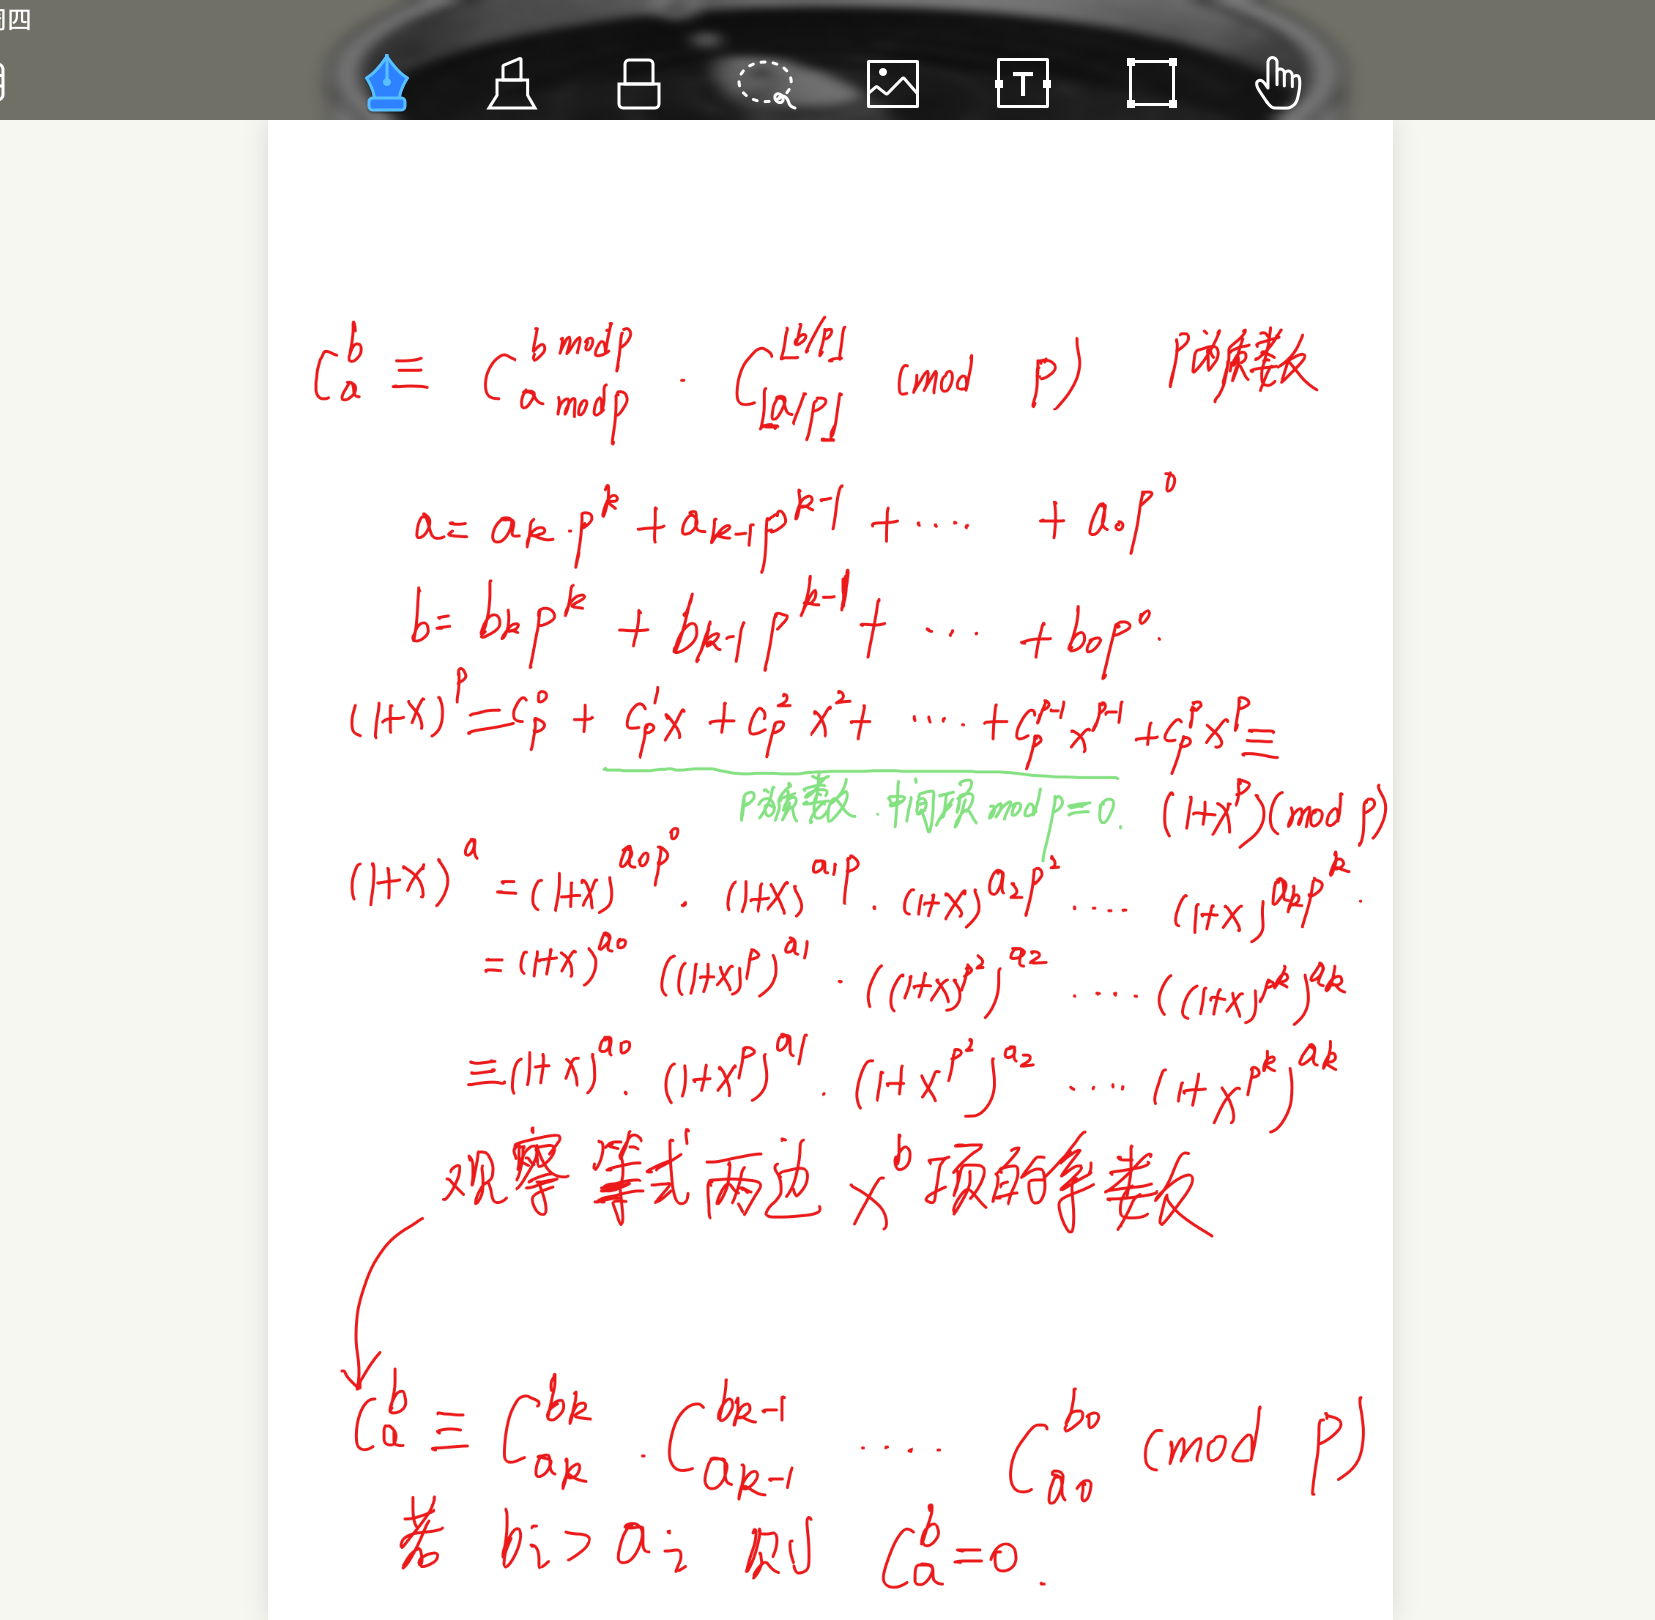 周四
T
C_a^b ≡ C_{a mod p}^{b mod p} · C_{⌊a/p⌋}^{⌊b/p⌋} (mod p) P为质数
a = a_k · p^k + a_{k-1} p^{k-1} + ···· + a_0 p^0
b = b_k p^k + b_{k-1} p^{k-1} + ··· + b_0 p^0 .
(1+x)^p = C_p^0 + C_p^1 x + C_p^2 x^2 + ···· + C_p^{p-1} x^{p-1} + C_p^p x^p ≡
P为质数 . 中间项 mod p = 0. (1+x^p)(mod p)
(1+x)^a = (1+x)^{a_0 p^0} · (1+x)^{a_1 p} · (1+x)^{a_2 p^2} ···· (1+x)^{a_k p^k} .
= (1+x)^{a_0} ((1+x)^p)^{a_1} · ((1+x)^{p^2})^{a_2} ···· ((1+x)^{p^k})^{a_k}
≡ (1+x)^{a_0} . (1+x^p)^{a_1} . (1+x^{p^2})^{a_2} ···· (1+x^{p^k})^{a_k}
观察等式两边 x^b 项的系数
C_a^b ≡ C_{a_k}^{b_k} · C_{a_{k-1}}^{b_{k-1}} ···· C_{a_0}^{b_0} (mod p)
若 b_i > a_i 则 C_a^b = 0 .